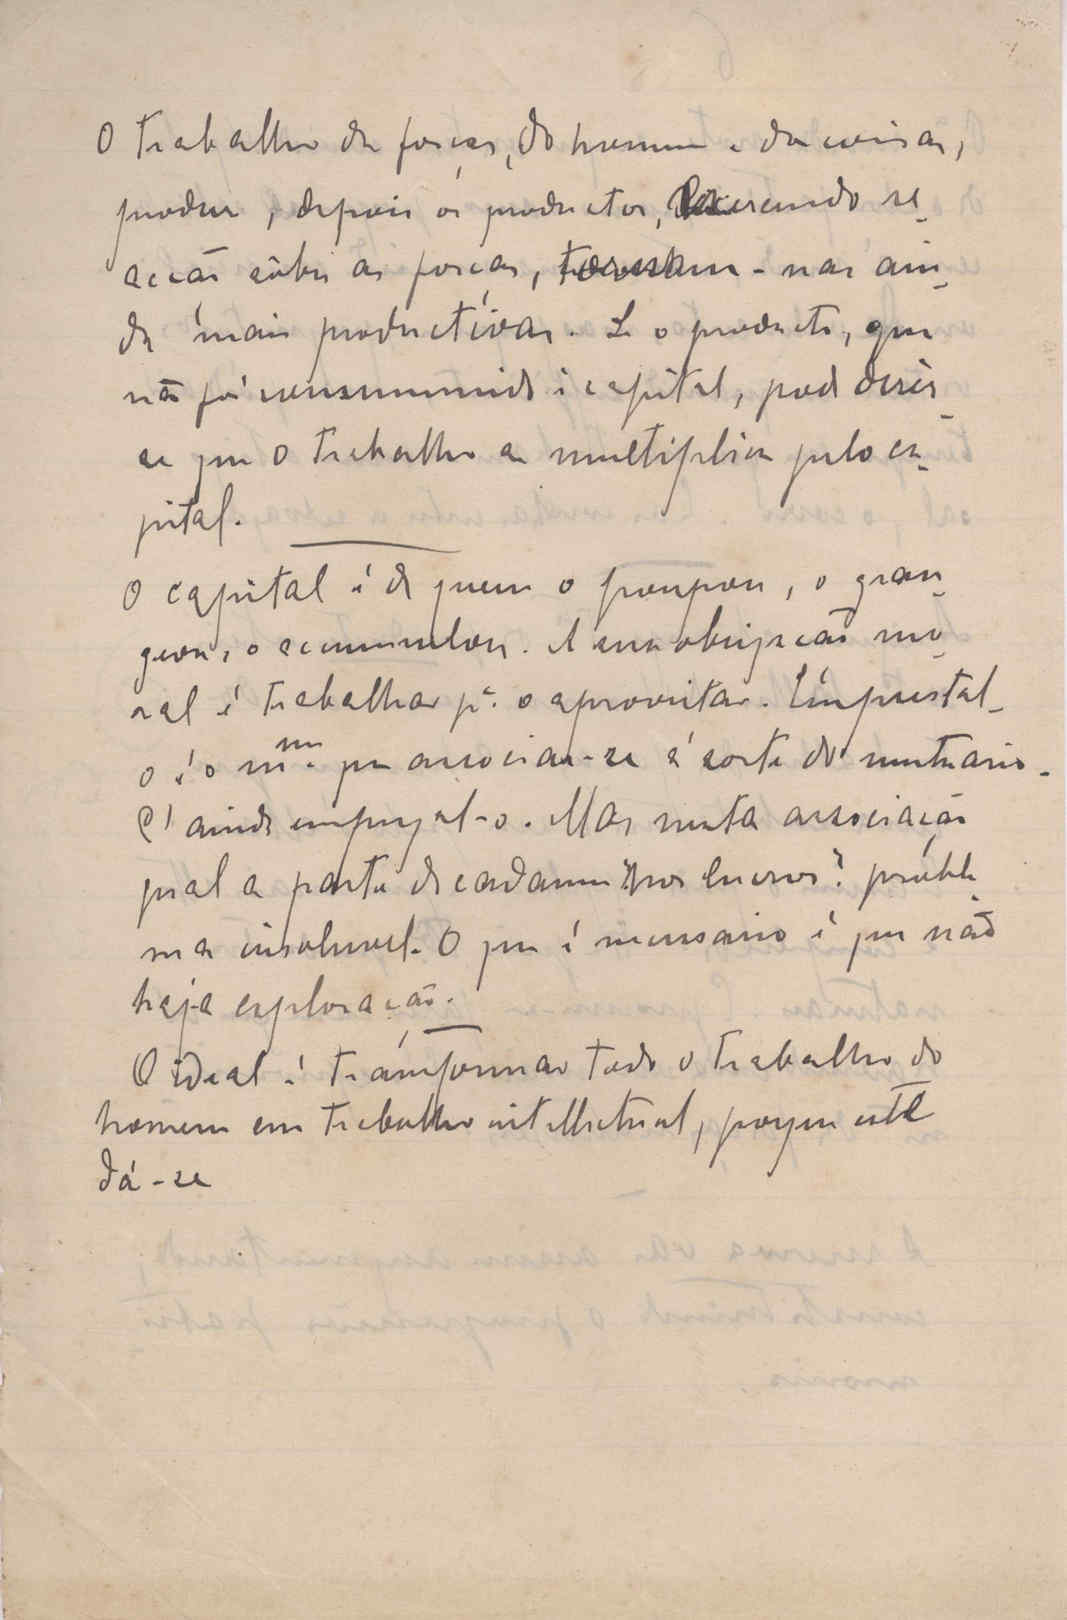 O trabalho da forças, do homem e das coisas,
produz, depois os productos, exercendo re-
acção sôbre as forças, tornam-nas ain-
da mais productivas. Se o producto, que
não foi consummido é capital, pode dizer-
se que o trabalho se multiplica pelo ca-
pital.
O capital é de quem o poupou, o gran-
geou, o accumulou. A sua obrigação mo-
ral é trabalhar pª o aproveitar. Emprestal-
o é o mmo que associar-se á sorte do mutuario.
É ainda empregal-o. Mas nesta associação
qual a parte de cada um nos lucros? proble-
ma insoluvel. O que é necessario é que não
haja exploração.
O ideal é transformar todo o trabalho do
homem em trabalho intellectual, porque este
dá-se